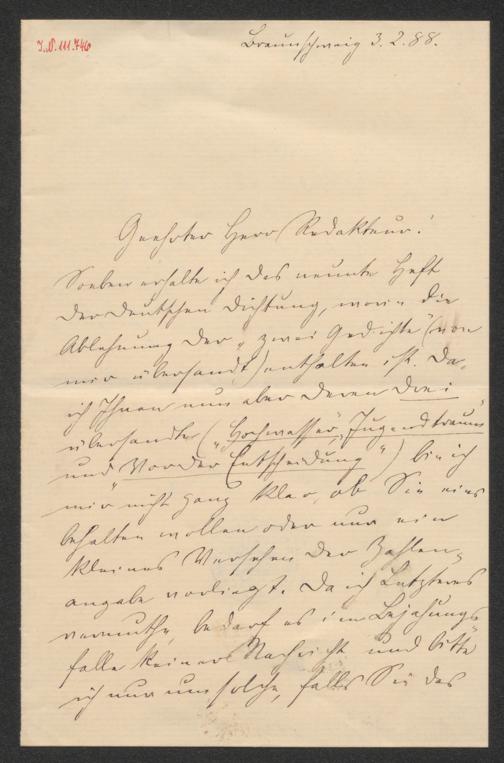 I.N. 111.746
Braunschweig 3.2.88.
Geehrter Herr Redakteur!
Soeben erhalte ich das neunte Heft
der Deutschen Dichtung, worin die
Ablehnung der „zwei Gedichte“ (von
mir übersandt) enthalten ist. Da
ich Ihnen nun aber deren drei
übersandte („Hochwasser“, „Jugendtraum“
und „Vor der Entscheidung“) bin ich
mir nicht ganz klar, ob Sie eins
behalten wollen oder nur ein
kleines Versehen der Zahlen-
angabe vorliegt. Da ich Letzteres
vermuthe, bedarf es im Bejahungs-
falle keiner Nachricht und bitte
ich nur um solche, falls Sie das